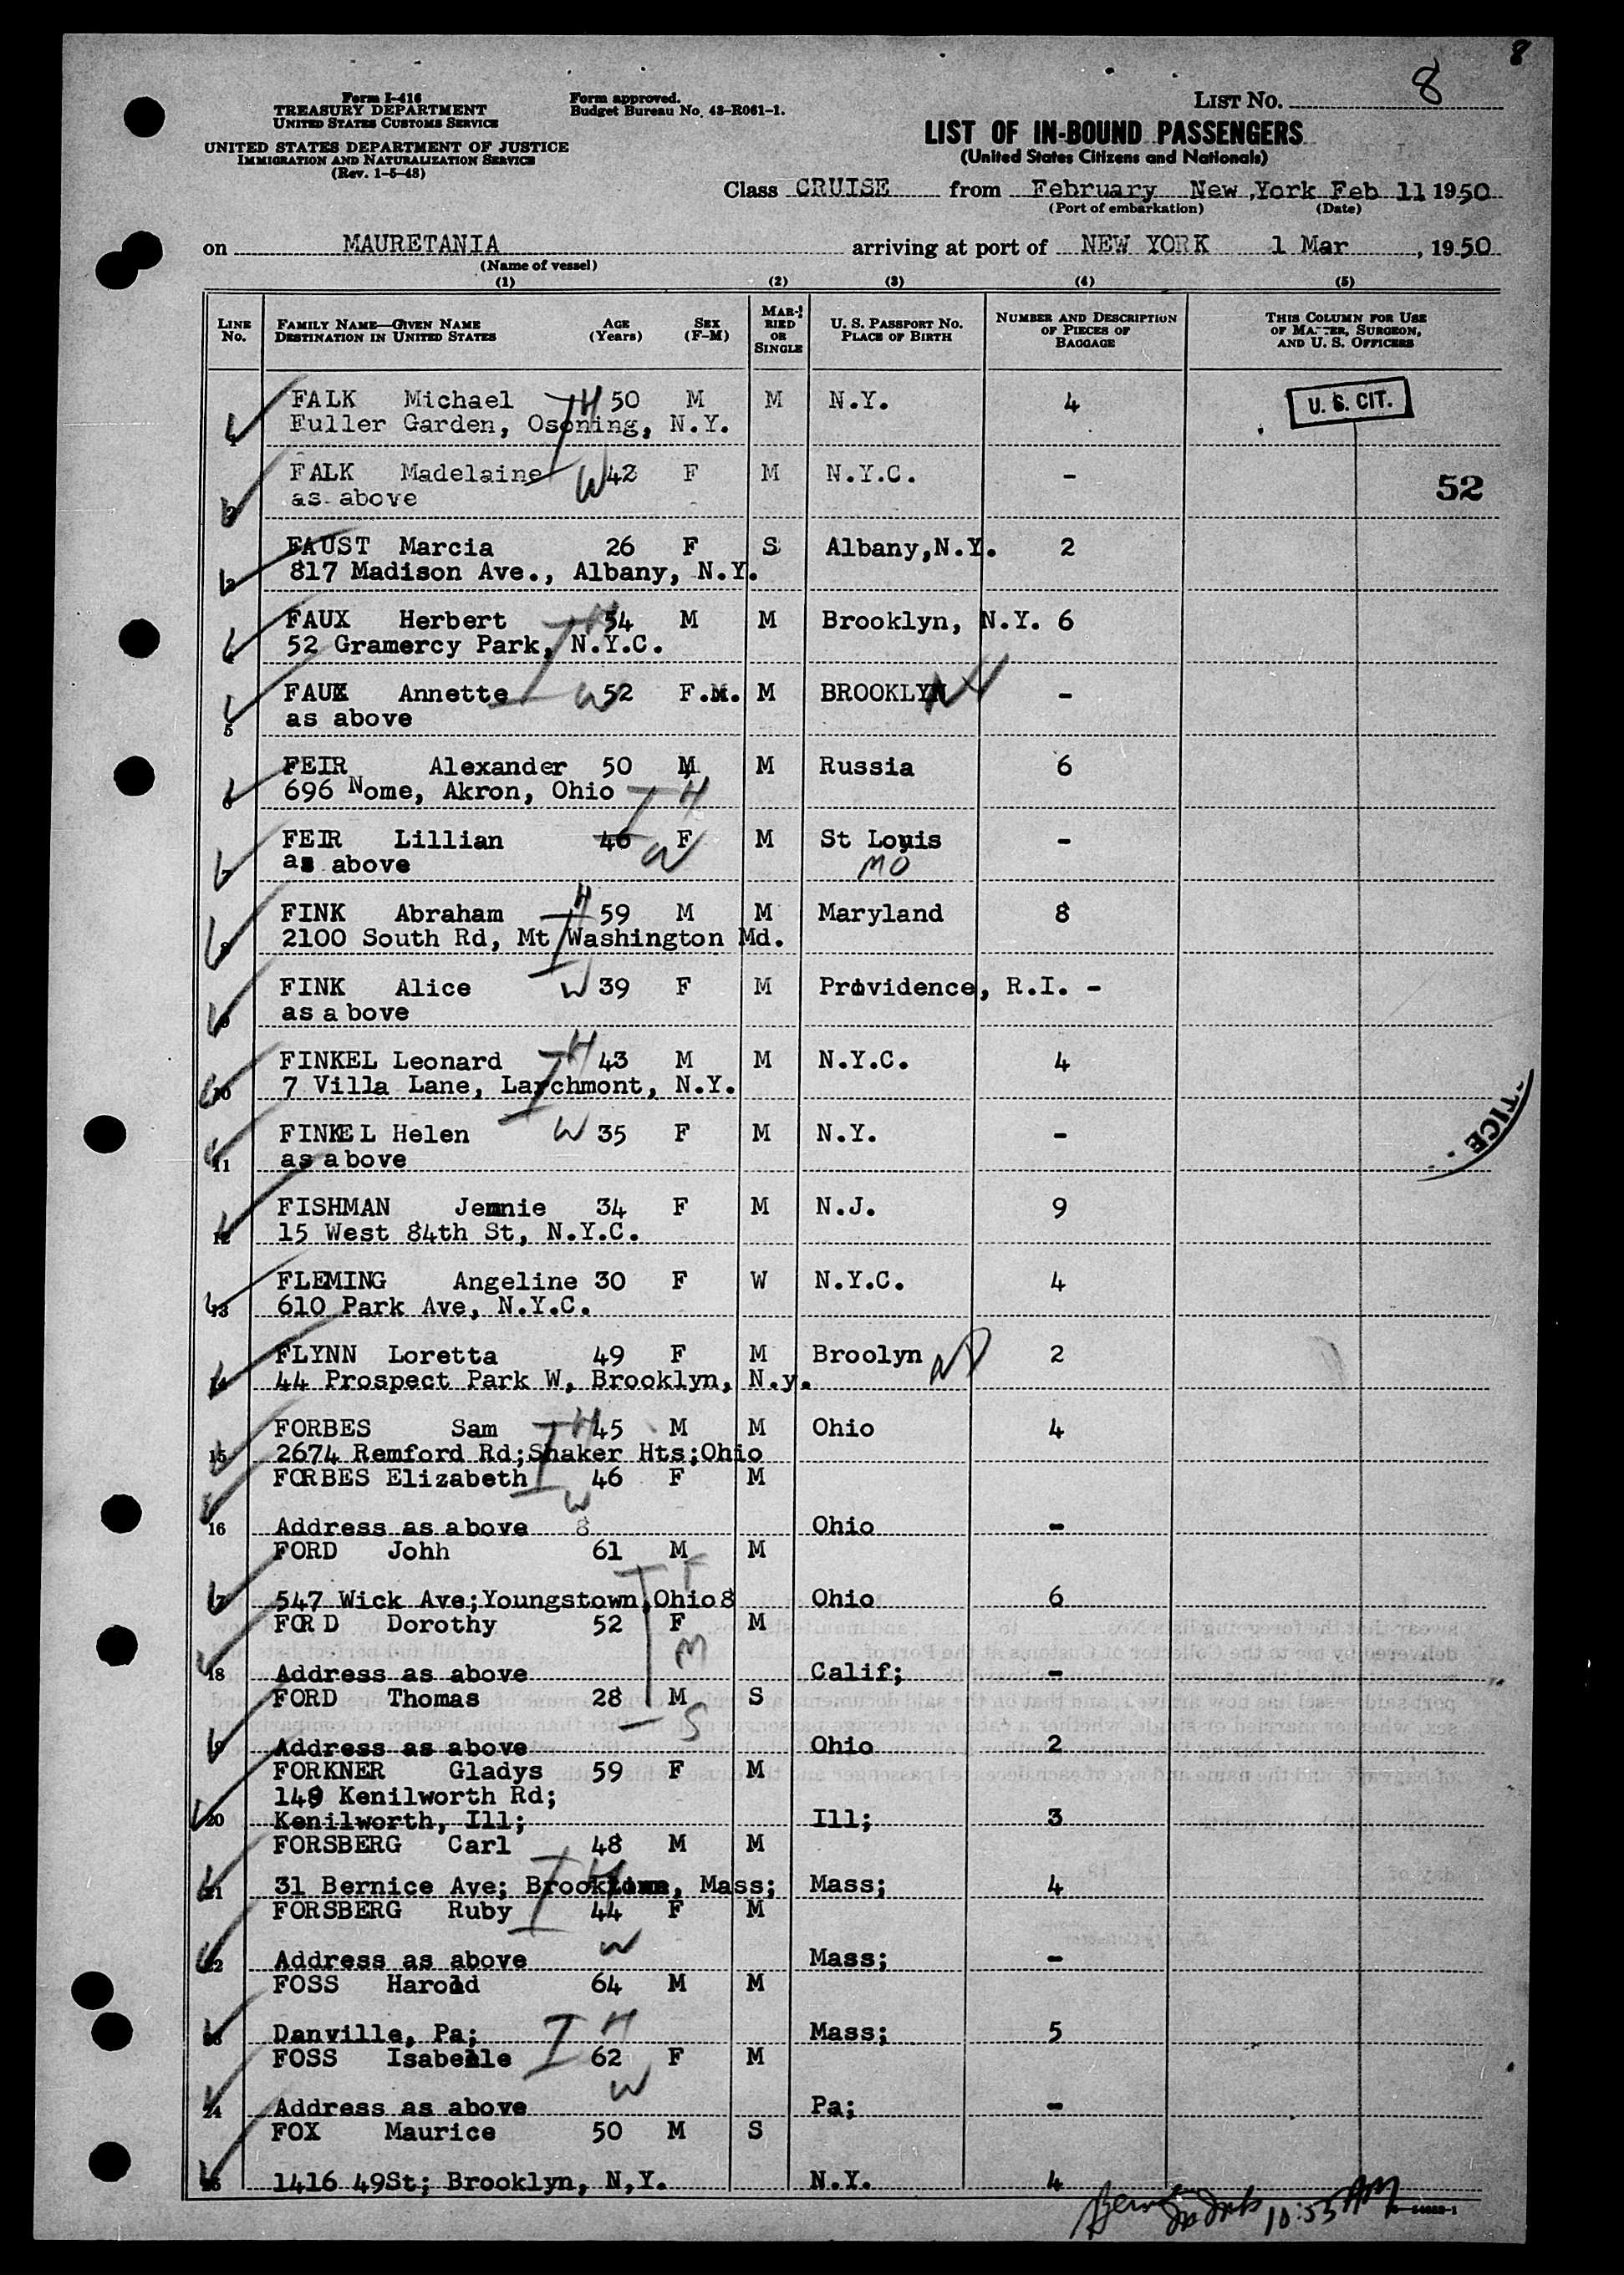 8
8
Form I-416
TREASURY DEPARTMENT
UNITED STATES CUSTOMS SERVICE
Form approved.
Budget Bureau No. 43-R061-1.
LIST NO. 
UNITED STATES DEPARTMENT OF JUSTICE
IMMIGRATION AND NATURALIZATION SERVICE
(Rev. 1-5-48)
LIST OF IN-BOUND PASSENGERS
(United States Citizens and Nationals)
Class CRUISE from February New ,York Feb 11 1950
(Port of embarkation) (Date)
on MAURETANIA arriving at port of NEW YORK 1 Mar , 1950
(Name of vessel)
(1) (2) (3) (4) (5)
LINE NO. FAMILY NAME—GIVEN NAME DESTINATION IN UNITED STATES AGE (Years) SEX (F-M) MARRIED OR SINGLE U. S. PASSPORT NO. PLACE OF BIRTH NUMBER AND DESCRIPTION OF PIECES OF BAGGAGE THIS COLUMN FOR USE OF MASTER, SURGEON, AND U. S. OFFICERS
FALK Michael H 50 M M N.Y. 4 U. S. CIT.
1 Fuller Garden, Osoning, N.Y.
FALK Madelaine W 42 F M N.Y.C. - 52
2 as above
FAUST Marcia 26 F S Albany,N.Y. 2
3 817 Madison Ave., Albany, N.Y.
FAUX Herbert H 54 M M Brooklyn, N.Y. 6
4 52 Gramercy Park, N.Y.C.
FAUX Annette W 52 F.M. M BROOKLYN NY -
5 as above
FEIR Alexander 50 M M Russia 6
6 696 Nome, Akron, Ohio H
FEIR Lillian 46 F M St Louis -
7 as above W MO
FINK Abraham H 59 M M Maryland 8
8 2100 South Rd, Mt Washington Md.
FINK Alice W 39 F M Providence, R.I. -
9 as above
FINKEL Leonard H 43 M M N.Y.C. 4
10 7 Villa Lane, Larchmont, N.Y.
FINKEL Helen W 35 F M N.Y. -
11 as above
FISHMAN Jennie 34 F M N.J. 9
12 15 West 84th St, N.Y.C.
FLEMING Angeline 30 F W N.Y.C. 4
13 610 Park Ave, N.Y.C.
FLYNN Loretta 49 F M Broolyn 2
14 44 Prospect Park W, Brooklyn, N.y.
FORBES Sam H 45 M M Ohio 4
15 2674 Remford Rd;Shaker Hts;Ohio
FORBES Elizabeth 46 F M
W
16 Address as above 8 Ohio -
FORD Johh 61 M M
F
17 547 Wick Ave;Youngstown,Ohio8 Ohio 6
FORD Dorothy 52 F M
M
18 Address as above Calif; -
FORD Thomas 28 M S
S
19 Address as above Ohio 2
FORKNER Gladys 59 F M
149 Kenilworth Rd;
20 Kenilworth, Ill; Ill; 3
FORSBERG Carl 48 M M
H
21 31 Bernice Ave; Mass; Mass; 4
FORSBERG Ruby 44 F M
W
22 Address as above Mass; -
FOSS Harold 64 M M
H
23 Danville, Pa; Mass; 5
FOSS Isabelle 62 F M
W
24 Address as above Pa; -
FOX Maurice 50 M S
25 1416 49St; Brooklyn, N,Y. N.Y. 4
TICE
10:55 AM